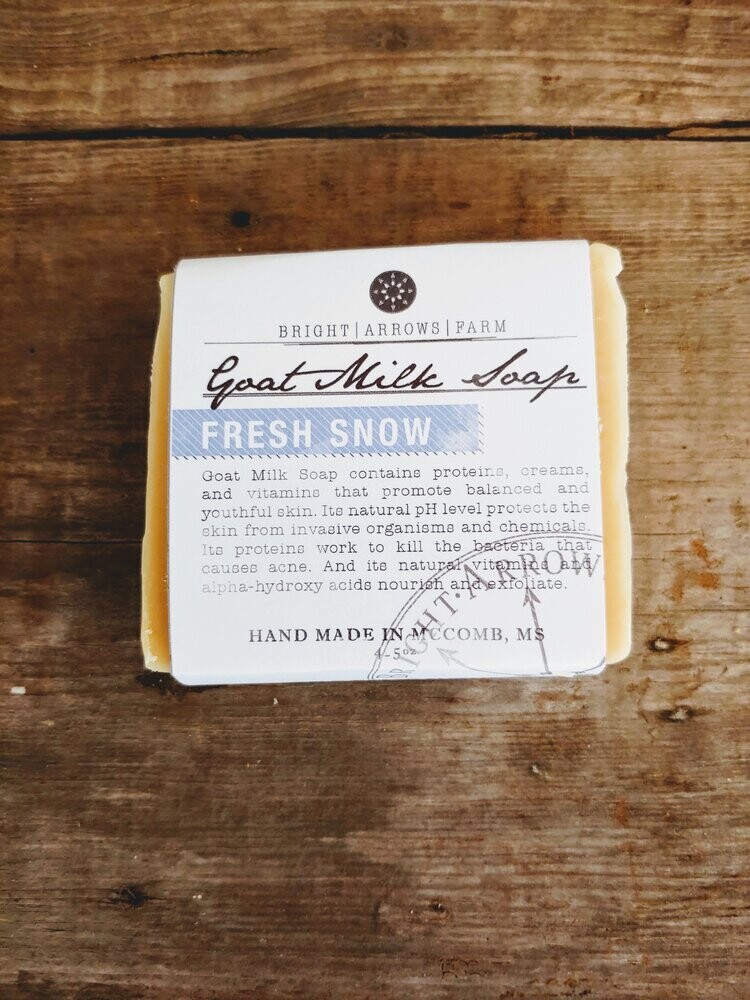 BRIGHT|ARROWS|FARM
Goat Milk Soap
FRESH SNOW
Goat Milk Soap contains proteins, creams,
and vitamins that promote balanced and
youthful skin. Its natural pH level protects the
skin from invasive organisms and chemicals.
Its proteins work to kill the bacteria that
causes acne. And its natural vitamins and
alpha-hydroxy acids nourish and exfoliate.
BRIGHT·ARROW
HAND MADE IN MCCOMB, MS
4-5oz